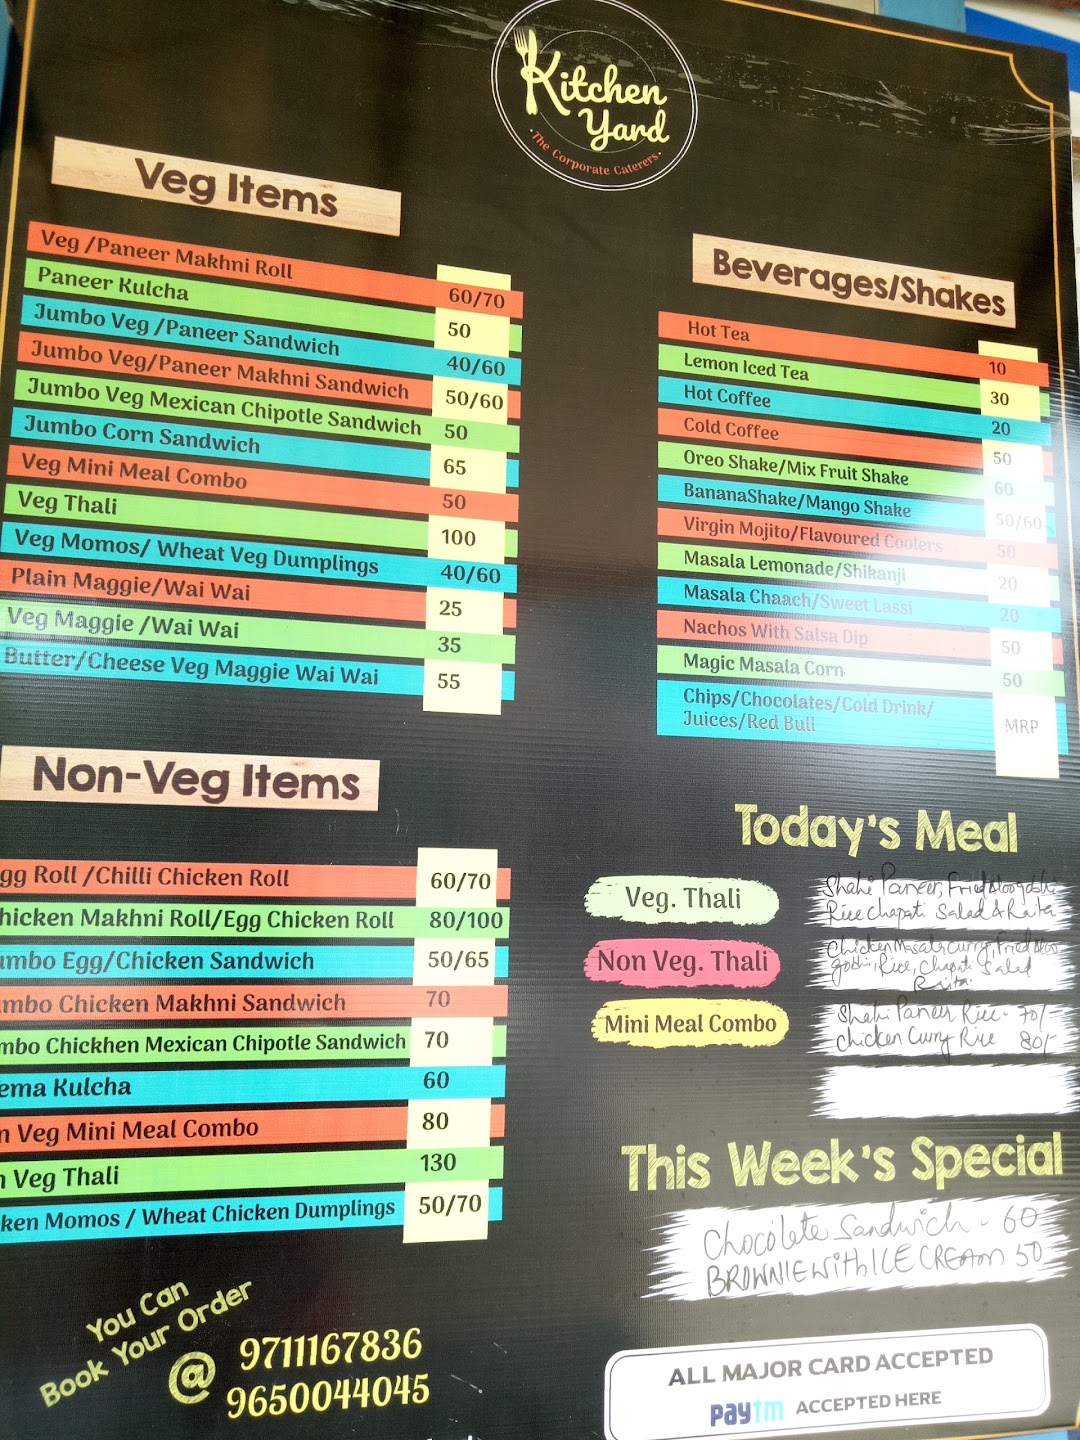 Kitchen
Yard
The Corporate Caterers
Veg Items
Veg /Paneer Makhni Roll 60/70
Paneer Kulcha 50
Jumbo Veg /Paneer Sandwich 40/60
Jumbo Veg/Paneer Makhni Sandwich 50/60
Jumbo Veg Mexican Chipotle Sandwich 50
Jumbo Corn Sandwich 65
Veg Mini Meal Combo 50
Veg Thali 100
Veg Momos/ Wheat Veg Dumplings 40/60
Plain Maggie/Wai Wai 25
Veg Maggie /Wai Wai 35
Butter/Cheese Veg Maggie Wai Wai 55
Non-Veg Items
gg Roll /Chilli Chicken Roll 60/70
hicken Makhni Roll/Egg Chicken Roll 80/100
umbo Egg/Chicken Sandwich 50/65
mbo Chicken Makhni Sandwich 70
mbo Chickhen Mexican Chipotle Sandwich 70
ema Kulcha 60
n Veg Mini Meal Combo 80
n Veg Thali 130
ken Momos / Wheat Chicken Dumplings 50/70
You Can
Book Your Order
@ 9711167836
9650044045
Beverages/Shakes
Hot Tea 10
Lemon Iced Tea 30
Hot Coffee 20
Cold Coffee 50
Oreo Shake/Mix Fruit Shake 60
BananaShake/Mango Shake 50/60
Virgin Mojito/Flavoured Coolers 50
Masala Lemonade/Shikanji 20
Masala Chaach/Sweet Lassi 20
Nachos With Salsa Dip 50
Magic Masala Corn 50
Chips/Chocolates/Cold Drink/
Juices/Red Bull MRP
Today's Meal
Veg. Thali
Shahi Paneer, Fried Aloo gobhi
Rice Chapati Salad & Raita
Non Veg. Thali
Chicken Masala Curry, Fried Aloo
gobhi, Rice, Chapati Salad
Raita
Mini Meal Combo
Shahi Paneer Rice - 70/-
Chicken Curry Rice 80/-
This Week's Special
Chocolate Sandwich - 60
BROWNIE with ICE CREAM 50
ALL MAJOR CARD ACCEPTED
paytm ACCEPTED HERE